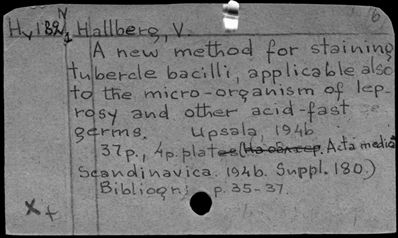 Hy182 N/1 Hallberg, V.
A new method for staining
tubercle bacilli, applicable also
to the micro-organism of lep-
rosy and other acid-fast
germs. Upsala, 1946
37p., 4p. plates (На обл. сер. Acta medica
Scandinavica. 1946. Suppl. 180.)
Bibliogr.: p. 35-37.